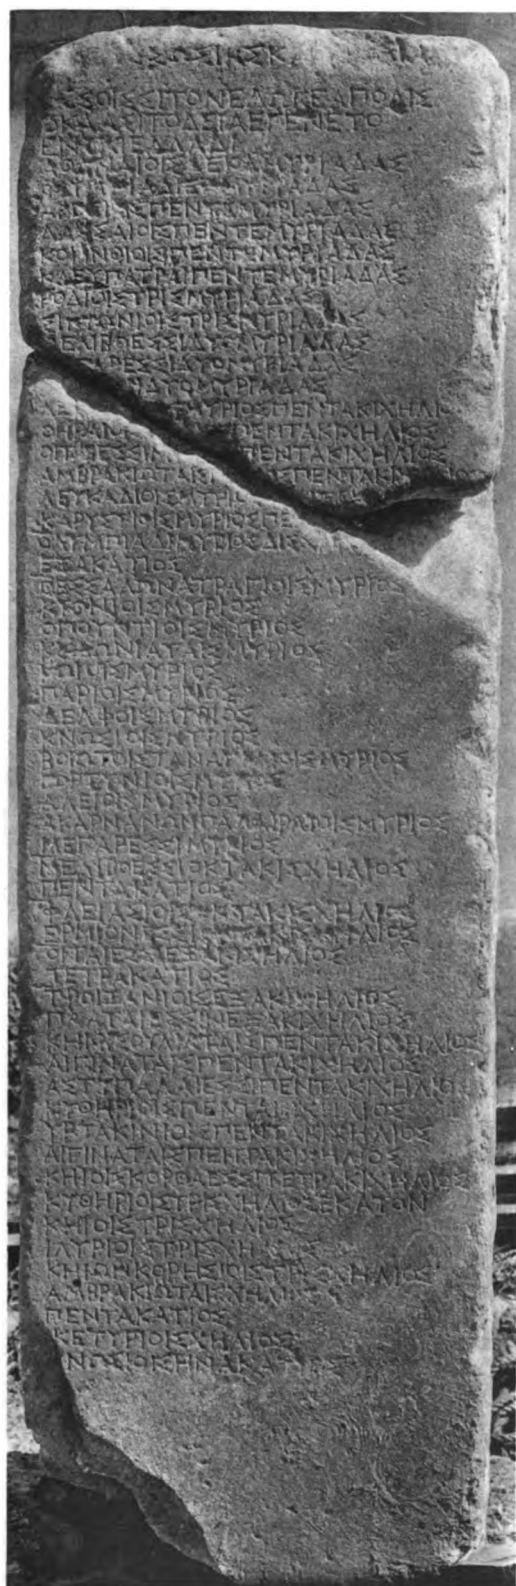 ΣΩΣΙΝΣΚ
ΟΣΣΟΙΣ ΣΙΤΟΝ ΕΔΩΚΕ Α ΠΟΛΙΣ
ΟΚΑ Α ΣΙΤΟΔΕΙΑ ΕΓΕΝΕΤΟ
ΕΝ ΤΑΙ ΕΛΛΑΔΙ
ΔΕΚΑ ΜΥΡΙΑΔΑΣ
ΜΥΡΙΑΔΑΣ
ΠΕΝΤΕ ΜΥΡΙΑΔΑΣ
ΛΑΡΙΣΑΙΟΙΣ ΠΕΝΤΕ ΜΥΡΙΑΔΑΣ
ΚΟΡΙΝΘΙΟΙΣ ΠΕΝΤΕ ΜΥΡΙΑΔΑΣ
ΚΛΕΥΠΑΤΡΑΙ ΠΕΝΤΕ ΜΥΡΙΑΔΑΣ
ΡΟΔΙΟΙΣ ΤΡΙΣ ΜΥΡΙΑΔΑΣ
ΣΙΚΥΩΝΙΟΙΣ ΤΡΙΣ ΜΥΡΙΑΔΑΣ
ΜΕΛΙΒΟΕΣΣΙ ΔΥΟ ΜΥΡΙΑΔΑΣ
ΜΕΓΑΡΕΣΣΙ ΔΥΟ ΜΥΡΙΑΔΑΣ
ΔΥΟ ΜΥΡΙΑΔΑΣ
ΛΕΣ ΜΥΡΙΟΣ ΠΕΝΤΑΚΙΧΗΛΙΟΣ
ΘΗΡΑΙΟΙΣ ΠΕΝΤΑΚΙΧΗΛΙΟΣ
ΟΙΤ ΠΕΝΤΑΚΙΧΗΛΙΟΣ
ΑΜΒΡΑΚΙΩΤΑΙΣ ΠΕΝΤΑΚΙΧΗΛΙΟΣ
ΛΕΥΚΑΔΙΟΙΣ ΜΥΡΙΟ
ΚΑΡΥΣΤΙΟΙΣ ΜΥΡΙΟΣ ΠΕ
ΟΛΥΜΠΙΑΔΙ ΜΥΡΙΟΣ ΔΙΣΧΗΛΙΟΣ
ΕΞΑΚΑΤΙΟΣ
ΘΕΣΣΑΛΩΝ ΑΤΡΑΓΙΟΙΣ ΜΥΡΙΟΣ
ΚΥΘΝΙΟΙΣ ΜΥΡΙΟΣ
ΟΠΟΥΝΤΙΟΙΣ ΜΥΡΙΟΣ
ΚΥΔΩΝΙΑΤΑΙΣ ΜΥΡΙΟΣ
ΚΩΙΟΙΣ ΜΥΡΙΟΣ
ΠΑΡΙΟΙΣ ΜΥΡΙΟΣ
ΔΕΛΦΟΙΣ ΜΥΡΙΟΣ
ΚΝΩΣΙΟΙΣ ΜΥΡΙΟΣ
ΒΟΙΩΤΟΙΣ ΤΑΝΑΓΡΑΙΟΙΣ ΜΥΡΙΟΣ
ΓΟΡΤΥΝΙΟΙΣ ΜΥΡΙΟΣ
ΑΛΕΙΟΙΣ ΜΥΡΙΟΣ
ΑΚΑΡΝΑΝΩΜ ΠΑΛΑΙΡΑΙΟΙΣ ΜΥΡΙΟΣ
ΜΕΓΑΡΕΣΣΙ ΜΥΡΙΟΣ
ΜΕΛΙΒΟΕΣΣΙ ΟΚΤΑΚΙΣΧΗΛΙΟΣ
ΠΕΝΤΑΚΑΤΙΟΣ
ΦΛΕΙΑΣΙΟΙΣ ΟΚΤΑΚΙΣΧΗΛΙΟΣ
ΕΡΜΙΟΝΕΣΣΙ ΟΚΤΑΚΙΣΧΗΛΙΟΣ
ΟΙΤΑΙΕΣΣΙ ΕΞΑΚΙΧΗΛΙΟΣ
ΤΕΤΡΑΚΑΤΙΟΣ
ΤΡΟΙΖΑΝΙΟΙΣ ΕΞΑΚΙΧΗΛΙΟΣ
ΠΛΑΤΑΙΕΣΣΙ ΕΞΑΚΙΧΗΛΙΟΣ
ΚΗΙΟΙΣ ΟΥΛΙΑΤΑΙΣ ΠΕΝΤΑΚΙΧΗΛΙΟΣ
ΑΙΓΙΝΑΤΑΙΣ ΠΕΝΤΑΚΙΧΗΛΙΟΣ
ΑΣΤΥΠΑΛΑΙΕΣΣΙ ΠΕΝΤΑΚΙΧΗΛΙΟΣ
ΚΥΘΗΡΙΟΙΣ ΠΕΝΤΑΚΙΧΗΛΙΟΣ
ΥΡΤΑΚΙΝΙΟΙΣ ΠΕΝΤΑΚΙΧΗΛΙΟΣ
ΑΙΓΙΝΑΤΑΙΣ ΠΕΝΤΑΚΙΧΗΛΙΟΣ
ΚΗΙΟΙΣ ΚΟΡΘΑΕΣΣΙ ΤΕΤΡΑΚΙΧΗΛΙΟΣ
ΚΥΘΗΡΙΟΙΣ ΤΡΙΣΧΗΛΙΟΣ ΕΚΑΤΟΝ
ΚΗΙΟΙΣ ΤΡΙΣΧΗΛΙΟΣ
ΙΛΥΡΙΟΙΣ ΤΡΙΣΧΗΛΙΟΣ
ΚΗΙΩΝ ΚΟΡΗΣΙΟΙΣ ΤΡΙΣΧΗΛΙΟΣ
ΑΜΒΡΑΚΙΩΤΑΙΣ ΧΗΛΙΟΣ
ΠΕΝΤΑΚΑΤΙΟΣ
ΙΚΕΤΥΡΙΟΙΣ ΧΗΛΙΟΣ
ΚΝΩΣΙΟΙΣ ΗΝΑΚΑΤΙΟΣ